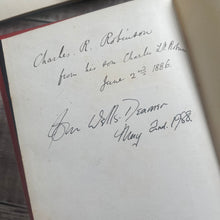 Charles. R. Robinson
from his son Charles
June 2nd 1886.
Wells. Deamer
May 2nd. 1988.